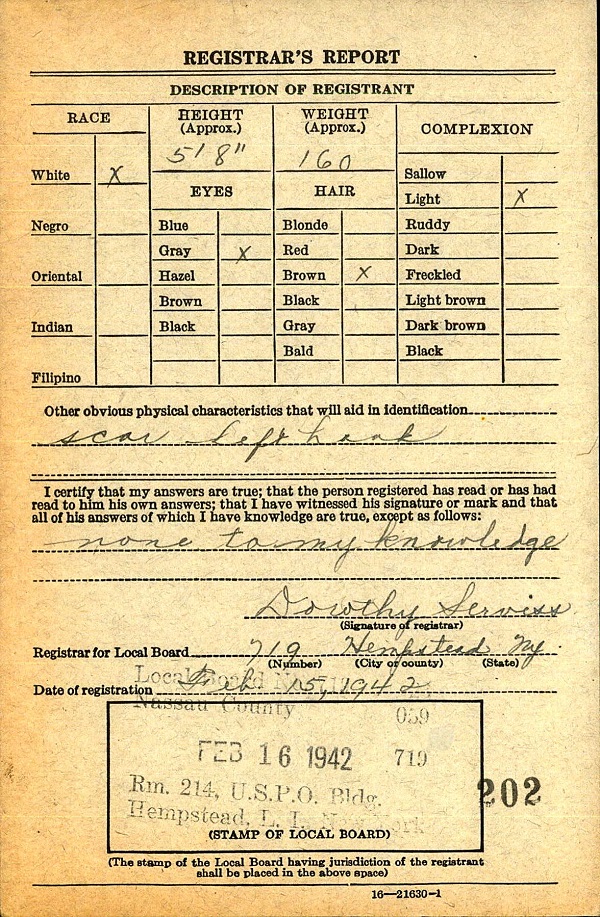 REGISTRAR'S REPORT
DESCRIPTION OF REGISTRANT
RACE
HEIGHT
(Approx.)
WEIGHT
(Approx.)
COMPLEXION
5' 8"
160
White X
EYES
HAIR
Sallow
Light X
Negro
Blue
Blonde
Ruddy
Gray X
Red
Dark
Oriental
Hazel
Brown X
Freckled
Brown
Black
Light brown
Indian
Black
Gray
Dark brown
Bald
Black
Filipino
Other obvious physical characteristics that will aid in identification
scar left
I certify that my answers are true; that the person registered has read or has had
read to him his own answers; that I have witnessed his signature or mark and that
all of his answers of which I have knowledge are true, except as follows:
none to my knowledge
Dorothy Serviss
(Signature of registrar)
Registrar for Local Board 719 Hempstead Ny.
(Number) (City or county) (State)
Local Board
Date of registration Feb 15, 1942
Nassau County
059
FEB 16 1942 719
Rm. 214, U.S.P.O. Bldg.
202
Hempstead, L. I. New York
(STAMP OF LOCAL BOARD)
(The stamp of the Local Board having jurisdiction of the registrant
shall be placed in the above space)
16—21630-1